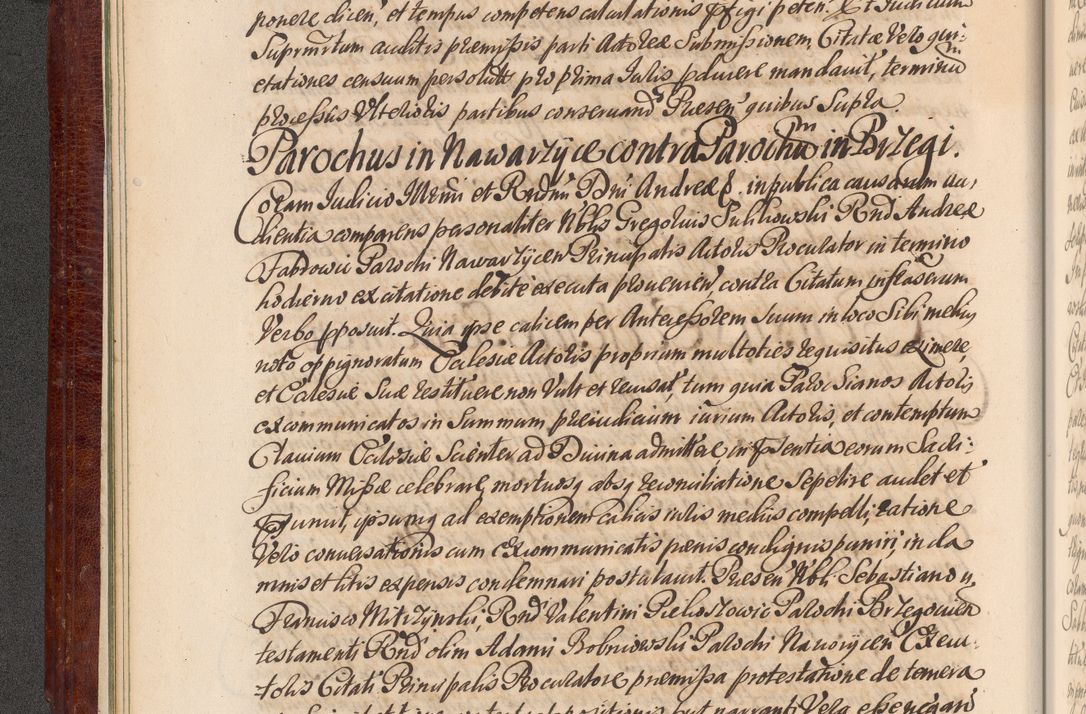 ponere dicen, et tempus competens calculationis pfigi peten. Et Judicium
Suprmtum auditis præmissis parti Actoreæ Submissionem, Citatæ Vero qui-
etationes censuum persolut pro prima Juris pducere mandavit, terminū
processus Ulterioris partibus conservand. Presen quibus Supra.
Parochus in Nawarzyce contra Parochū in Brzegi.
Coram Judicio Illrmi et Rndmi Dni Andreæ in publica causarum au-
dientia comparens personaliter Nblis Gregorius Sulikowski Rndi Andreæ
Parochi Nawarzycen Principalis Actoris Procurator in termino
hodierno ex citatione debite executa provenien contra Citatum infrascrum
Verbo pposuit. Quia ipse calicem per Antecessorem Suum in loco Sibi melius
noto oppignoratum Ecclesiæ Actoris propriam multoties requisitus eximere,
et Ecclesiæ Suæ restituere non Vult et recusat, tum quia Parochianos Actoris
excommunicatos in Summum præiudicium iurium Actoris, et contemptum
Clavium Ecclesiæ Scienter ad Divina admittere, in pſentia eorum Sacri-
ficium Missæ celebrare, mortuosq absq reconciliatione Sepelire audet et
ipsumq ad exemptionem calicis iuris mediis compelli, ratione
Vero conversationis cum excommunicatis pænis condignis puniri, in da
mnis et litis expensis condemnari postulavit. Presen Nbli Sebastiano
Francisco Mitrzynski, Rndi Valentini Parochi Brzegovien
testamenti Rndi olim Adami Parochi Nawarzycen Execu-
toris Citati Principalis Procuratore præmissa protestatione de temera